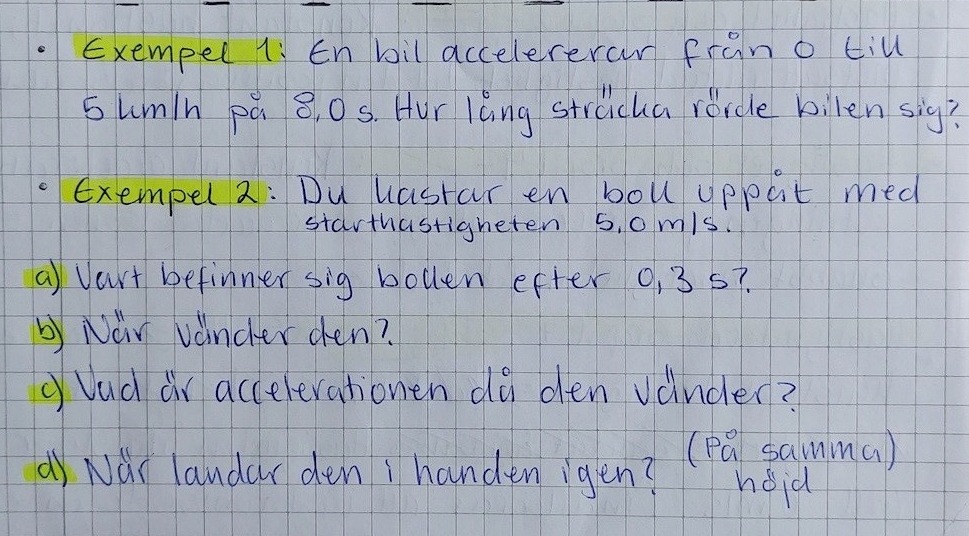 • Exempel 1: En bil accelererar från 0 till
5 km/h på 8,0 s. Hur lång sträcka rörde bilen sig?
• Exempel 2: Du kastar en boll uppåt med
starthastigheten 5,0 m/s.
a) Vart befinner sig bollen efter 0,3 s?
b) När vänder den?
c) Vad är accelerationen då den vänder?
d) När landar den i handen igen? (På samma)
höjd